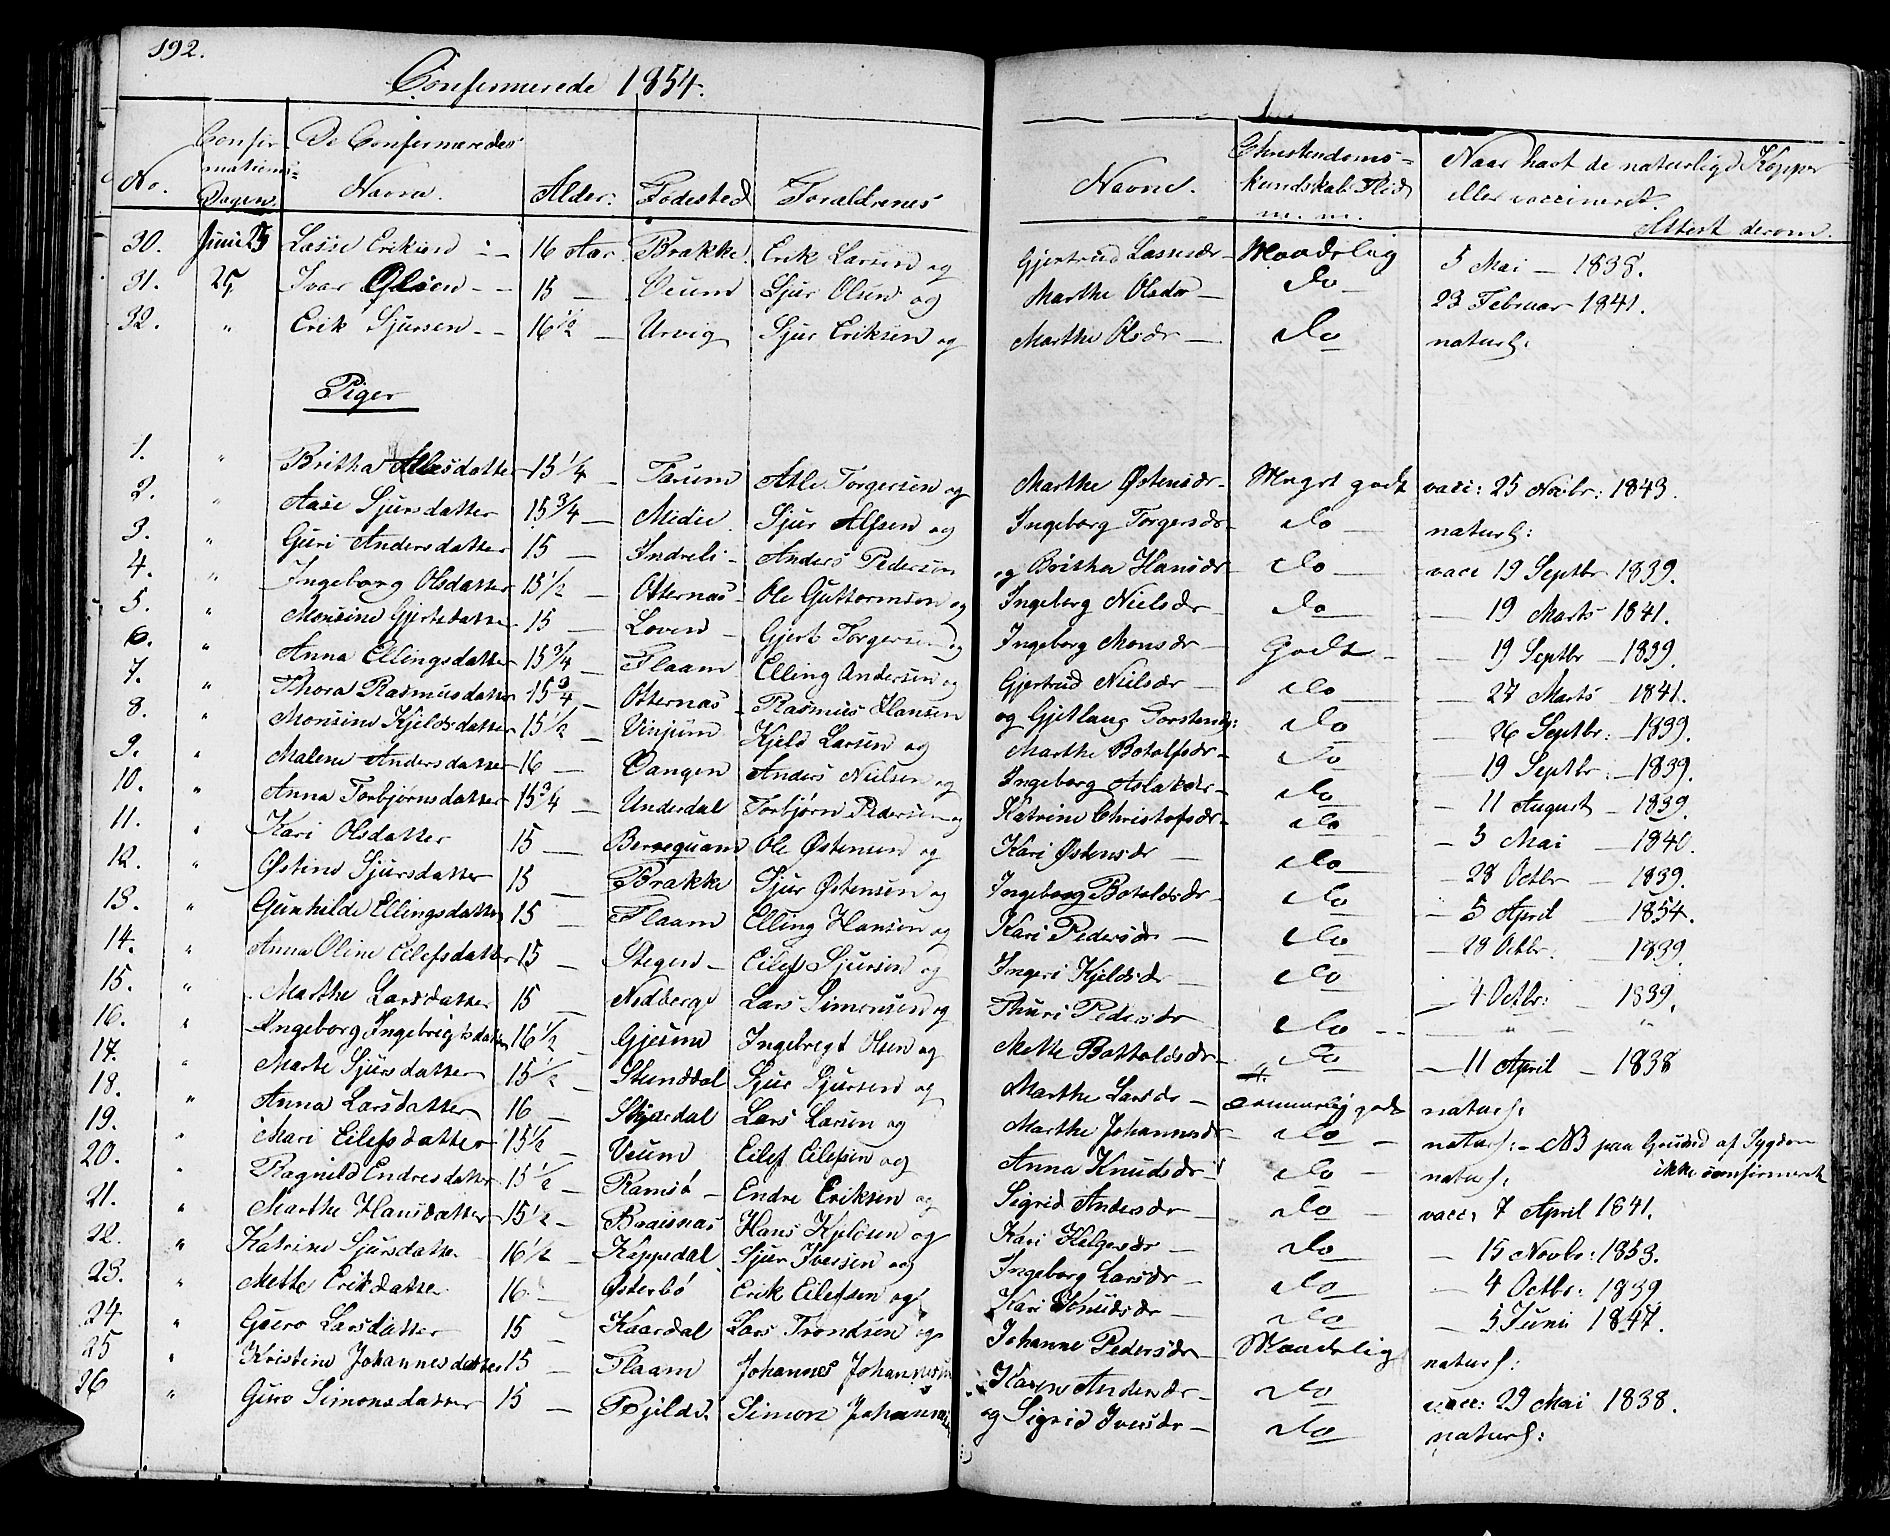 192.
Confirmerede 1854.
No. Confirmations-Dagen. De Confirmeredes Navne. Alder. Fødested Forældrenes Navne. Christendoms-kundskab Flid m. m. Naar havt de naturlige Kopper eller vaccineret. Attest derom.
30. Juni 25 Lasse Eriksen - - 16 Aar. Brække. Erik Larsen og Gjertrud Lassesdr - Maadelig 5 Mai - 1838.
31. 25 Ivar Olsen - - 15 - Veum Sjur Olsen og Marthe Olsdr - do - 23 Februar 1841.
32. " Erik Sjursen - - 16 1/2 - Urvig Sjur Eriksen og Marthe Olsdr - do naturl:
Piger
1. " Britha Atlesdatter 15 1/4 - Tarum Atle Torgersen og Marthe Østensdr - Meget godt vacc: 25 Novbr: 1843.
2. " Aase Sjursdatter 15 3/4 - Midie Sjur Alfsen og Ingeborg Torgersdr - do - naturl:
3. " Guri Andersdatter 15 - Indreli - Anders Pedersen og Britha Hansdr - do - vacc 19 Septbr 1839.
4. " Ingeborg Olsdatter 15 1/2 - Otternæs - Ole Guttormsen og Ingeborg Nielsdr - do - - 19 Marts 1841.
5. " Monsine Gjertsdatter 15 - Loven - Gjert Torgersen og Ingeborg Monsdr - Godt - - 19 Septbr - 1839.
6. " Anna Ellingsdatter 15 3/4 - Flaam Elling Andersen og Gjertrud Nielsdr - do - - 27 Marts - 1841.
7. " Thora Rasmusdatter 15 3/4 - Otternæs - Rasmus Hansen og Gjetlaug Torstensdr: do - 26 Septbr: - 1839.
8. " Monsine Kjeldsdatter 15 1/2 - Vinjum Kjeld Larsen og Marthe Botolfsdr - do - 19 Septbr: - 1839.
9. " Malene Andersdatter 16 - Vangen Anders Nielsen og Ingeborg Aslaksdr - do - 11 August - 1839.
10. " Anna Torbjørnsdatter 15 3/4 - Underdal Torbjørn Pedersen og Katrine Christofsdr - do - 3 Mai - 1840.
11. " Kari Olsdatter 15 - Berreqvam Ole Østensen og Kari Østensdr - do - 28 Octbr - 1839.
12. " Østine Sjursdatter 15 - Brække Sjur Østensen og Ingeborg Botoldsdr - do - 5 April - 1854.
13. " Gunhilde Ellingsdatter 15 - Flaam Elling Hansen og Kari Pedersdr - do - 28 Octbr. - 1839.
14. " Anna Oline Eilefsdatter 15 - Stegen - Eilef Sjursen og Ingeri Kjeldsdr - do - 4 Octbr: - 1839.
15. " Marthe Larsdatter 15 - Nedberge Lars Simonsen og Thuri Pedersdr - do - - - " - "
16. " Ingeborg Ingebrigtsdatter 16 1/2 - Gjerme Ingebrigt Olsen og Mette Bottoldsdr - do - 11 April - 1838
17. " Marte Sjursdatter 15 1/2 - Stunddal Sjur Sjursen og Marthe Larsdr - temmelig godt naturl:
18. " Anna Larsdatter 16 - Skjerdal Lars Larsen og Marthe Johannesdr - do - naturl: - NB paa Grund af Sygdom ikke confirmeret
19. " Mari Eilefsdatter 15 1/2 - Veum Eilef Eilefsen og Anna Knudsdr - do - naturl:
20. " Ragnild Endresdatter 15 1/2 - Ramsø - Endre Eriksen og Sigrid Andersdr - do - vacc: 7 April 1841.
21. " Marthe Hansdatter 15 1/2 - Hans Kjeldsen og Kari Helgesdr - do - 15 Novbr: 1853.
22. " Katrine Sjursdatter 16 1/2 - Kappedal Sjur Iversen og Ingeborg Larsdr - do - 4 Octbr: 1839.
23. " Mette Eriksdatter 16 - Østerbø Erik Eilefsen og Kari Knudsdr - do - 5 Juni 1847.
24. " Guro Larsdatter 15 - Kaardal Lars Trondsen og Johanne Pedersdr - Maadelig naturl:
25 " Kristine Johannesdatter 15 - Flaam Johannes Johannesen Karen Andersdr - do vacc: 29 Mai 1838.
26 " Guro Simonsdatter 15 - Simon og Sigrid Iversdr - do naturl: